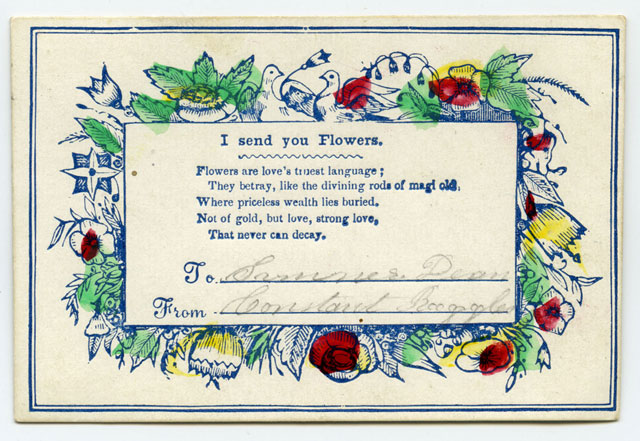 I send you Flowers.
Flowers are love's truest language;
They betray, like the divining rods of magi old,
Where priceless wealth lies buried.
Not of gold, but love, strong love,
That never can decay.
To Dean
From Constant